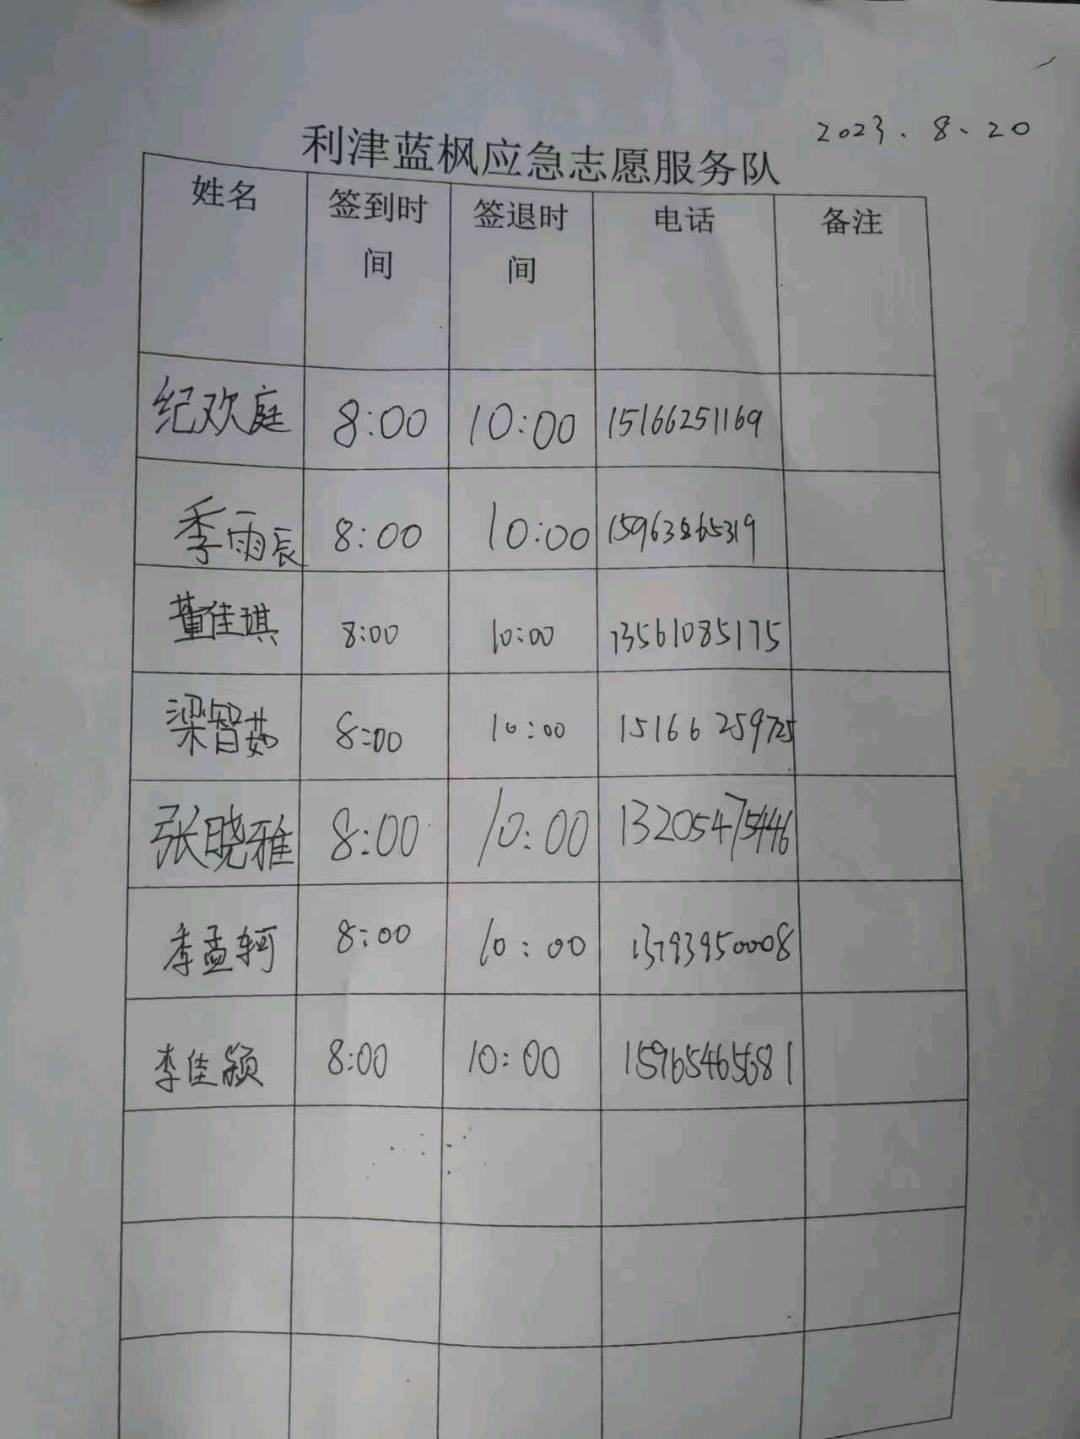 2023.8.20
利津蓝枫应急志愿服务队
姓名 签到时间 签退时间 电话 备注
纪欢庭 8:00 10:00 15166251169
季雨辰 8:00 10:00 15963865319
董佳琪 8:00 10:00 13561085175
梁智茹 8:00 10:00 15166259725
张晓雅 8:00 10:00 13205475446
李孟轲 8:00 10:00 13793950008
李佳颖 8:00 10:00 15965465681